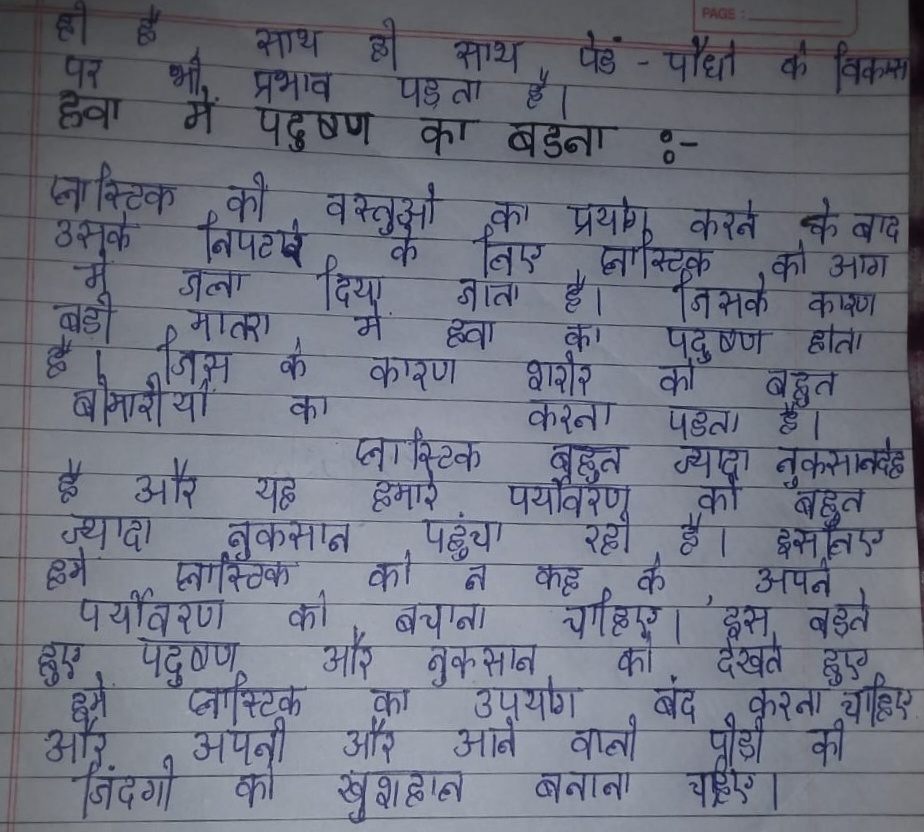 PAGE:
ही है साथ ही साथ पेडं - पौधो के विकास
पर भी प्रभाव पड़ता है।
हवा में पदुषण का बडना :-
प्लास्टिक की वस्तुओ का प्रयोग करने के बाद
उसके निपटारे के लिए प्लास्टिक को आग
में जला दिया जाता है। जिसके कारण
बडी मातरा में हवा का पदुषण होता
है। जिस के कारण शरीर को बहुत
बीमारीयों का करना पडता है।
प्लास्टिक बहुत ज्यादा नुकसानदेह
है और यह हमारे पर्यावरण को बहुत
ज्यादा नुकसान पहुंचा रही है। इसलिए
हमे प्लास्टिक को न कह के अपने
पर्यावरण को बचाना चाहिए। इस बडते
हुए पदुषण और नुकसान को देखते हुए
हमे प्लास्टिक का उपयोग बंद करना चाहिए
और अपनी और आने वाली पीडी की
जिंदगी को खुशहाल बनाना चाहिए।